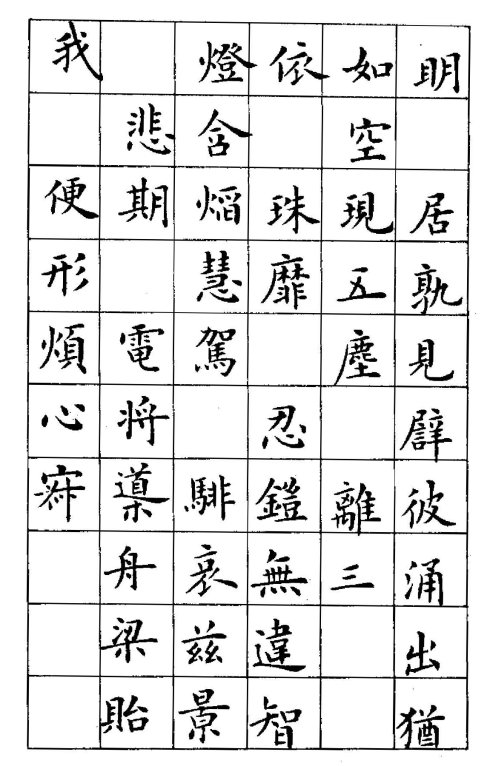 明居孰見辟彼涌出猶
如空現五塵離三
依珠靡忍鎧無違智
燈含焰慧駕騑哀兹景
悲期電将導舟梁貽
我便形煩心